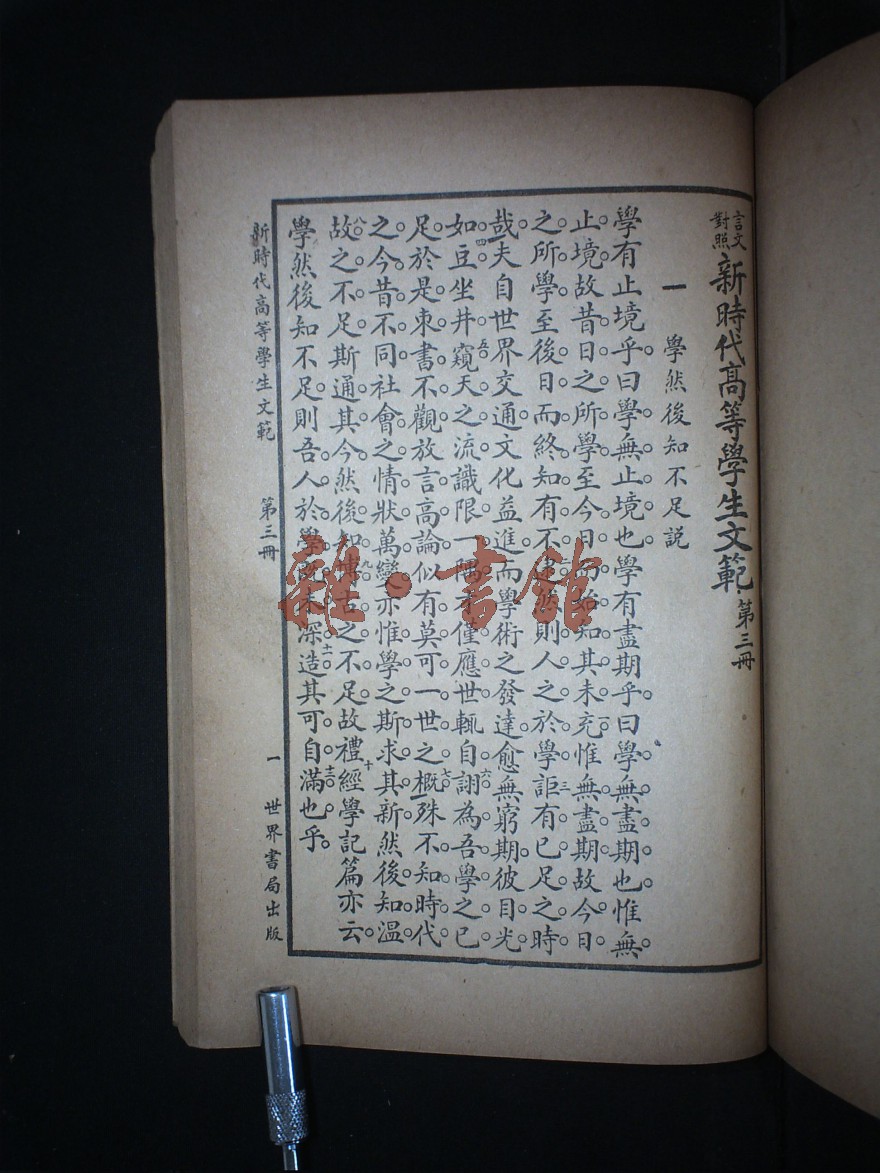 言文對照 新時代高等學生文範 第三冊
一 學然後知不足説
學有止境乎。曰學無止境也。學有盡期乎。曰學無盡期也。惟無
止境。故昔日之所學。至今日而始知其未充。一惟無盡期。故今日
之所學。至後日而終知有不逮。二然則人之於學。詎三有已足之時
哉。夫自世界交通。文化益進。而學術之發達。愈無窮期。彼目光
如豆。四坐井窺天之流。五識限一隅。不僅應世。輒自詡六為吾學之已
足。於是束書不觀。放言高論。似有莫可一世之概。七殊不知時代
之今昔不同。社會之情狀萬變。亦惟學之斯求其新。然後知溫
故八之不足。斯通其今。然後知博九古之不足。故禮經十學記篇亦云。
學然後知不足。則吾人於學既不深造。十一其可自滿十二也乎。
新時代高等學生文範 第三冊 一 世界書局出版
雜·書館